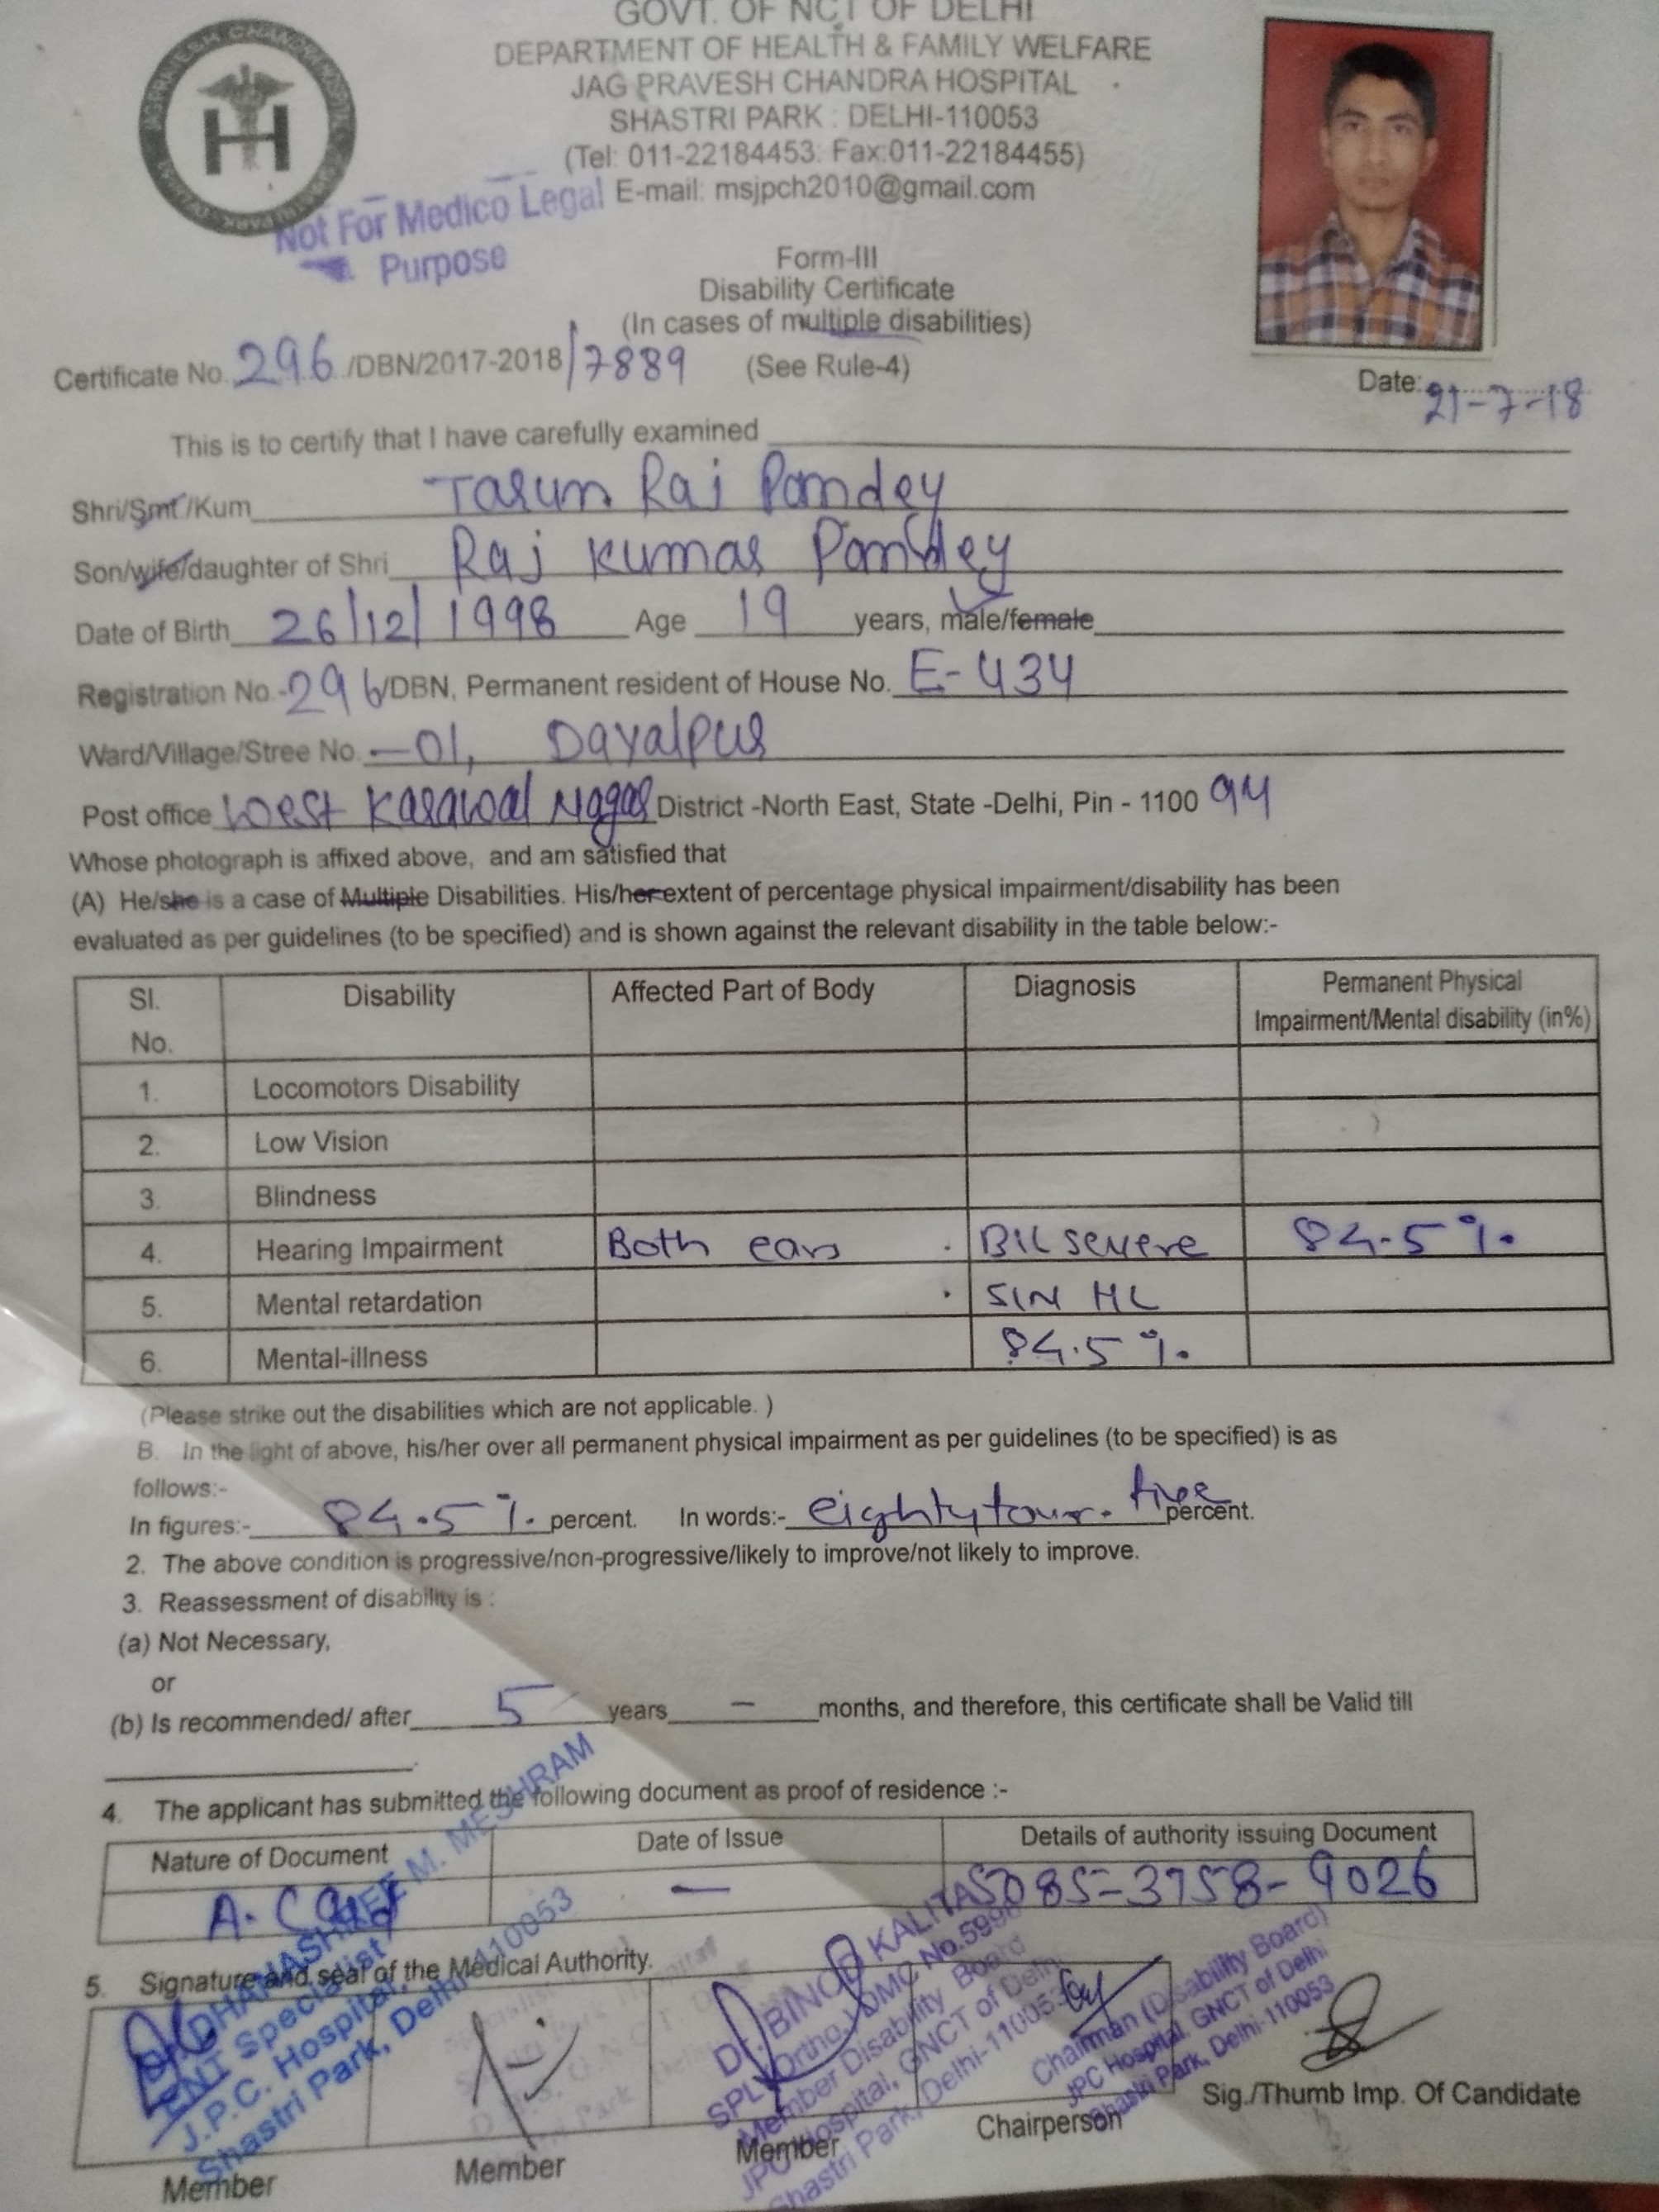 GOVT. OF NCT OF DELHI
DEPARTMENT OF HEALTH & FAMILY WELFARE
JAG PRAVESH CHANDRA HOSPITAL
SHASTRI PARK : DELHI-110053
(Tel: 011-22184453: Fax:011-22184455)
E-mail: msjpch2010@gmail.com
Not For Medico Legal
Purpose
Form-III
Disability Certificate
(In cases of multiple disabilities)
Certificate No. 296 /DBN/2017-2018/7889 (See Rule-4)
Date: 21-7-18
This is to certify that I have carefully examined
Shri/Smt./Kum Tarun Raj Pandey
Son/wife/daughter of Shri Raj Kumar Pandey
Date of Birth 26/12/1998 Age 19 years, male/female
Registration No.-296/DBN, Permanent resident of House No. E-434
Ward/Village/Stree No. -01, Dayalpur
Post office West Karawal Nagar District -North East, State -Delhi, Pin - 110094
Whose photograph is affixed above, and am satisfied that
(A) He/she is a case of Multiple Disabilities. His/her extent of percentage physical impairment/disability has been
evaluated as per guidelines (to be specified) and is shown against the relevant disability in the table below:-
Sl. No. Disability Affected Part of Body Diagnosis Permanent Physical Impairment/Mental disability (in%)
1. Locomotors Disability
2. Low Vision
3. Blindness
4. Hearing Impairment Both ears BIL severe 84.5%
5. Mental retardation SIN HL
6. Mental-illness 84.5%
(Please strike out the disabilities which are not applicable. )
B. In the light of above, his/her over all permanent physical impairment as per guidelines (to be specified) is as
follows:-
In figures:- 84.5% percent. In words:- eighty four. five percent.
2. The above condition is progressive/non-progressive/likely to improve/not likely to improve.
3. Reassessment of disability is :
(a) Not Necessary,
or
(b) Is recommended/ after 5 years - months, and therefore, this certificate shall be Valid till
4. The applicant has submitted the following document as proof of residence :-
Nature of Document Date of Issue Details of authority issuing Document
A. Card — 5085-3758-9026
5. Signature and seal of the Medical Authority.
DHANASHREE M. MESHRAM
ENT Specialist
J.P.C. Hospital
Shastri Park, Delhi-110053
Dr. BINOD KALITA
SPL Ortho. DMC No.
Member Disability Board
JPC Hospital, GNCT of Delhi
Shastri Park, Delhi-110053
Chairman (Disability Board)
JPC Hospital GNCT of Delhi
Shastri Park, Delhi-110053
Sig./Thumb Imp. Of Candidate
Member Member Member Chairperson